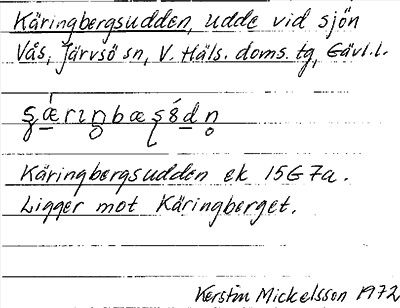 Käringbergsudden, udde vid sjön
Vås, Järvsö sn, V. Häls. doms. tg, Gävl.l.
Käringbergsudden ek 15G7a.
Ligger mot Käringberget.
Kerstin Mickelsson 1972